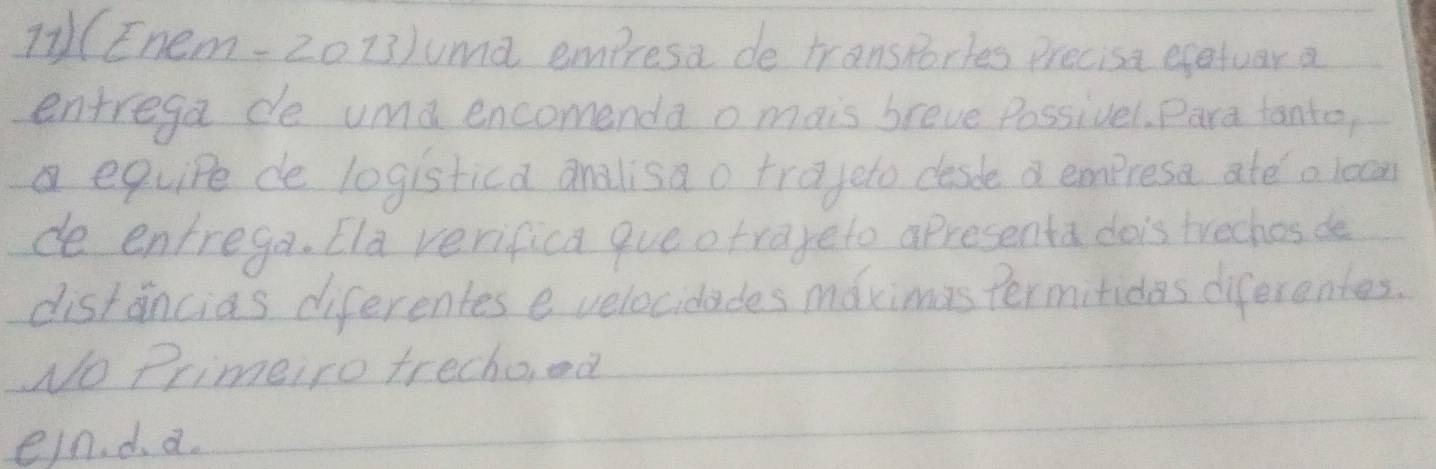 11)(Enem-2013)uma empresa de transportes precisa efetuar a
entrega de uma encomenda o mais breve Possivel. Para tanto,
a equipe de logística analisa o trajeto desde a empresa até o local
de entrega. Ela verifica que o trajeto apresenta dois trechos de
distâncias diferentes e velocidades máximas Permitidas diferentes.
No Primeiro trecho, a
e)n.d.a.